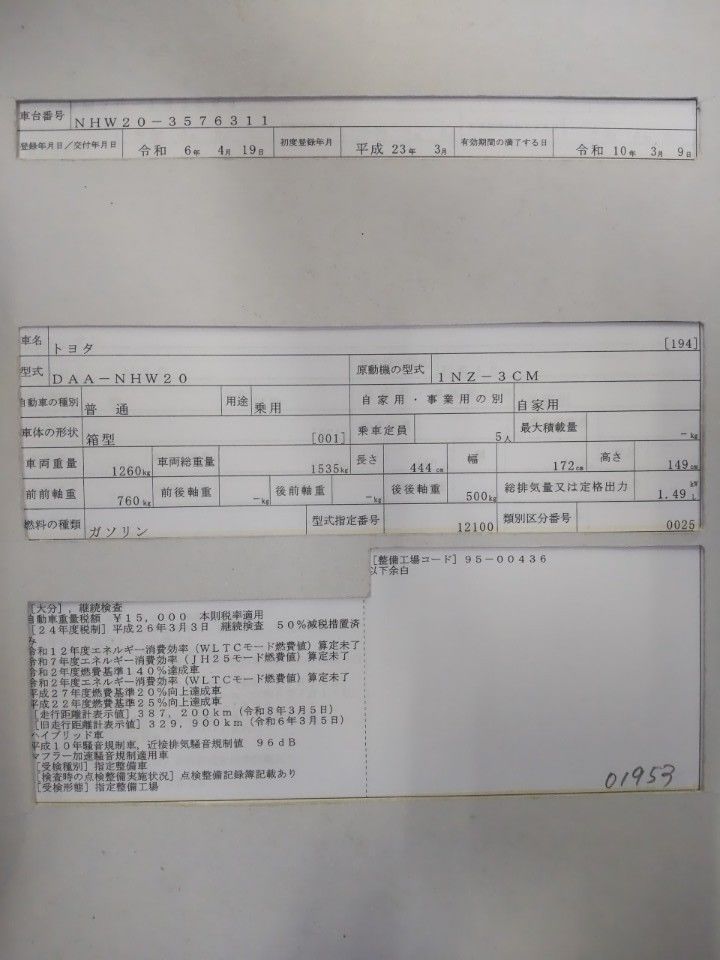 車台番号 NHW20-3576311
登録年月日/交付年月日 令和 6年 4月 19日 初度登録年月 平成 23年 3月 有効期間の満了する日 令和 10年 3月 9日
車名 トヨタ [194]
型式 DAA-NHW20 原動機の型式 1NZ-3CM
自動車の種別 普通 用途 乗用 自家用・事業用の別 自家用
車体の形状 箱型 [001] 乗車定員 5人 最大積載量 -kg
車両重量 1260kg 車両総重量 1535kg 長さ 444cm 幅 172cm 高さ 149cm
前前軸重 760kg 前後軸重 -kg 後前軸重 -kg 後後軸重 500kg 総排気量又は定格出力 1.49 kW L
燃料の種類 ガソリン 型式指定番号 12100 類別区分番号 0025
[整備工場コード] 95-00436
以下余白
[大分], 継続検査
自動車重量税額 ¥15,000 本則税率適用
[24年度税制] 平成26年3月3日 継続検査 50%減税措置済
み
令和12年度エネルギー消費効率(WLTCモード燃費値)算定未了
令和7年度エネルギー消費効率(JH25モード燃費値)算定未了
令和2年度燃費基準140%達成車
令和2年度エネルギー消費効率(WLTCモード燃費値)算定未了
平成27年度燃費基準20%向上達成車
平成22年度燃費基準25%向上達成車
[走行距離計表示値] 387,200km(令和8年3月5日)
[旧走行距離計表示値] 329,900km(令和6年3月5日)
ハイブリッド車
平成10年騒音規制車, 近接排気騒音規制値 96dB
マフラー加速騒音規制適用車
[受検種別] 指定整備車
[検査時の点検整備実施状況] 点検整備記録簿記載あり
[受検形態] 指定整備工場
01953